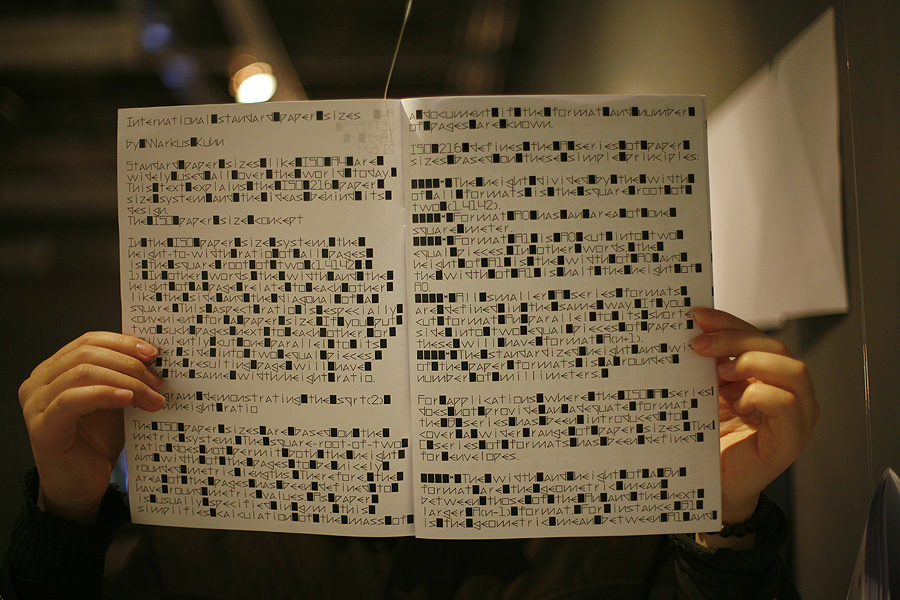 International standard paper sizes
by Markus Kuhn
Standard paper sizes like ISO A4 are
widely used all over the world today.
This text explains the ISO 216 paper
size system and the ideas behind its
design.
The ISO paper size concept
In the ISO paper size system, the
height-to-width ratio of all pages
is the square root of two (1.4142 : 1).
In other words, the width and the
height of a page relate to each other
like the side and the diagonal of a
square. This aspect ratio is especially
convenient for a paper size. If you put
two such pages next to each other, or
equivalently cut one parallel to its
side into two equal pieces,
the resulting page will have
the same width/height ratio.
demonstrating the sqrt(2)
height ratio
The ISO paper sizes are based on the
metric system. The square-root-of-two
ratio does not permit both the height
and width of the pages to be nicely
rounded metric lengths. Therefore, the
area of the pages has been defined to
have round metric values. As paper
is usually specified in g/m², this
simplifies calculation of the mass of
a document if the format and number
of pages are known.
ISO 216 defines the A series of paper
sizes based on these simple principles:
The height divided by the width
of all formats is the square root of
two (1.4142).
Format A0 has an area of one
square meter.
Format A1 is A0 cut into two
equal pieces. In other words, the
height of A1 is the width of A0 and
the width of A1 is half the height of
A0.
All smaller A series formats
are defined in the same way. If you
cut format An parallel to its shorter
side into two equal pieces of paper,
these will have format A(n+1).
The standardized height and
width of the paper formats is a rounded
number of millimeters.
For applications where the ISO A series
does not provide an adequate format,
the B series has been introduced to
cover a wider range of paper sizes. The
C series of formats has been defined
for envelopes.
The width and height of a Bn
format are the geometric mean
between those of the An and the next
larger A(n-1) format. For instance, B1
is the geometric mean between A1 and